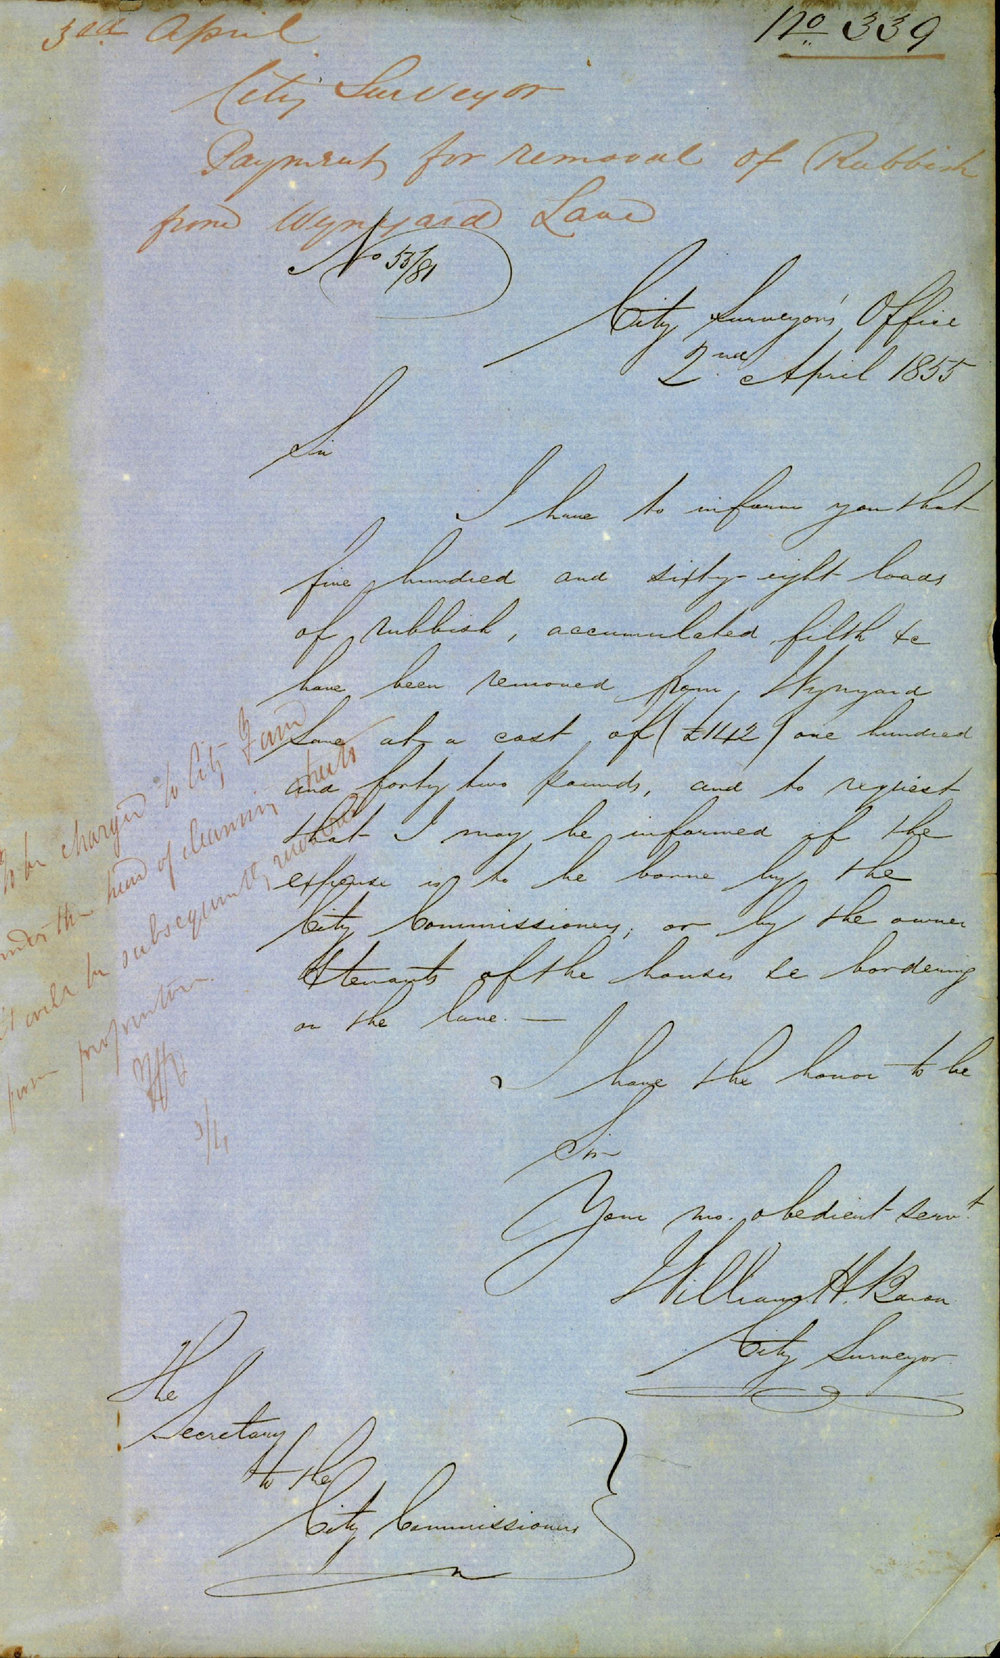 3rd April
No 339
City Surveyor
Payment for removal of Rubbish
from Wynyard Lane
No 55/81
City Surveyor's Office
2nd April 1855
Sir
I have to inform you that
five hundred and sixty-eight loads
of rubbish, accumulated filth &c
have been removed from Wynyard
Lane at a cost of (£142) one hundred
and forty two pounds, and to request
that I may be informed if the
expense is to be borne by the
City Commissioners, or by the owner
& tenants of the houses &c bordering
on the lane. —
I have the honor to be
Sir
Your mo. obedient servt.
William H. Baron
City Surveyor
The
Secretary
to the
City Commissioners
To be charged to City Fund
under the head of cleansing streets
it will be subsequently
from
3/4